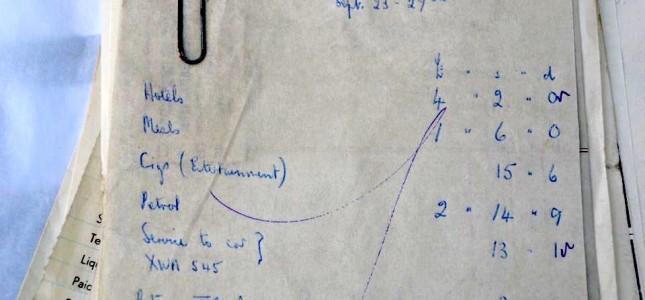 Sept. 23 - 29
£ " s " d
Hotels 4 " 2 " 0
Meals 1 " 6 " 0
Cigs (Entertainment) 15 " 6
Petrol 2 " 14 " 9
Service to car } 13 - 1
XWA 545
S
Te
Liq
Paid